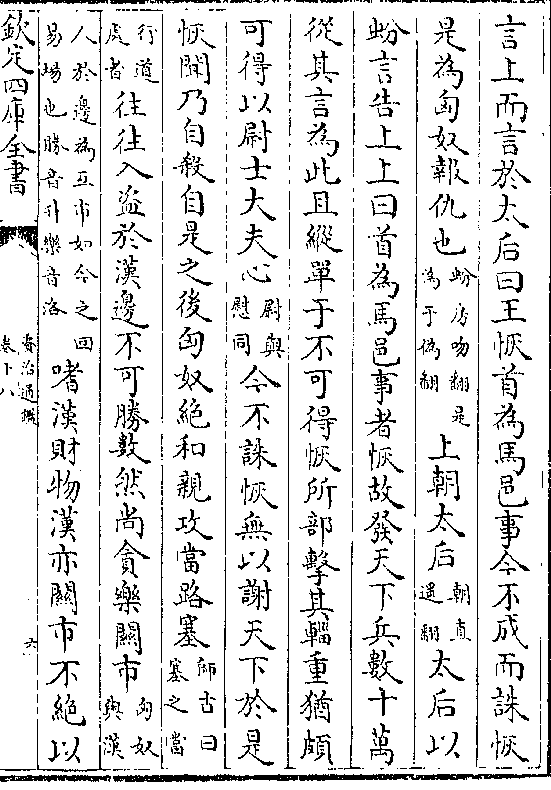 言上而言於太后曰王恢首為馬邑事今不成而誅恢
是為匈奴報仇也蚡房吻翻是為于偽翻上朝太后朝直遥翻太后以
蚡言告上上曰首為馬邑事者恢故發天下兵數十萬
從其言為此且縱單于不可得恢所部擊其輜重猶頗
可得以尉士大夫心尉與慰同今不誅恢無以謝天下於是
恢聞乃自殺自是之後匈奴絶和親攻當路塞師古曰塞之當
行道處者往往入盗於漢邊不可勝數然尚貪樂關市匈奴與漢
人於邊為互市如今之回易場也勝音升樂音洛嗜漢財物漢亦關市不絶以
欽定四庫全書
資治通鑑
卷十八
六